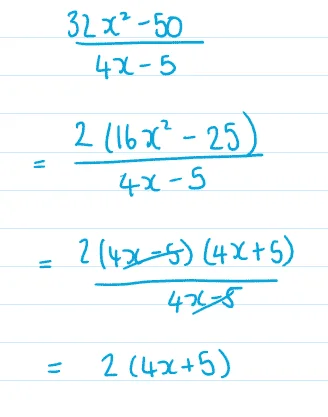 32x² - 50
4x - 5
= 2 (16x² - 25)
4x - 5
= 2 (4x - 5) (4x + 5)
4x - 5
= 2 (4x + 5)